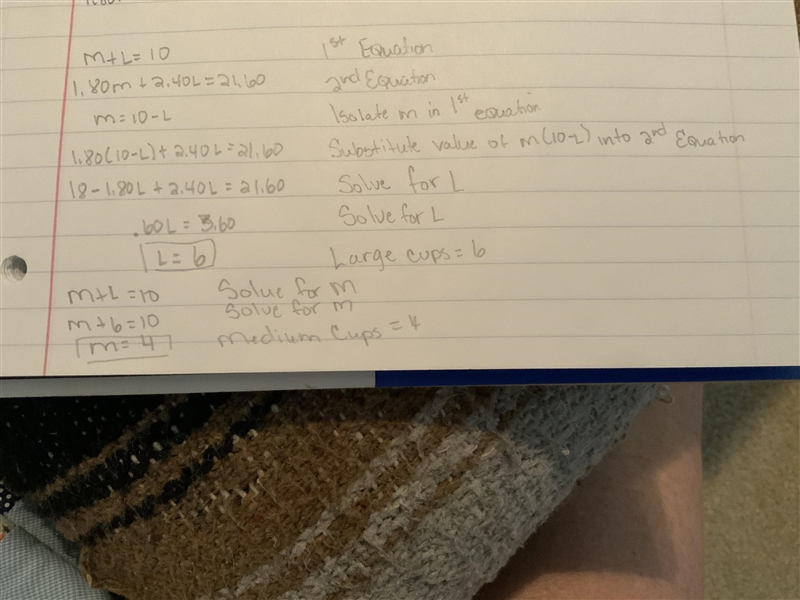 m+L=10 1st Equation
1.80m+2.40L=21.60 2nd Equation
m=10-L Isolate m in 1st equation
1.80(10-L)+2.40L=21.60 Substitute value of m(10-L) into 2nd Equation
18-1.80L+2.40L=21.60 Solve for L
.60L=3.60 Solve for L
L=6 Large cups=6
m+L=10 Solve for m
m+6=10 Solve for m
m=4 Medium Cups=4